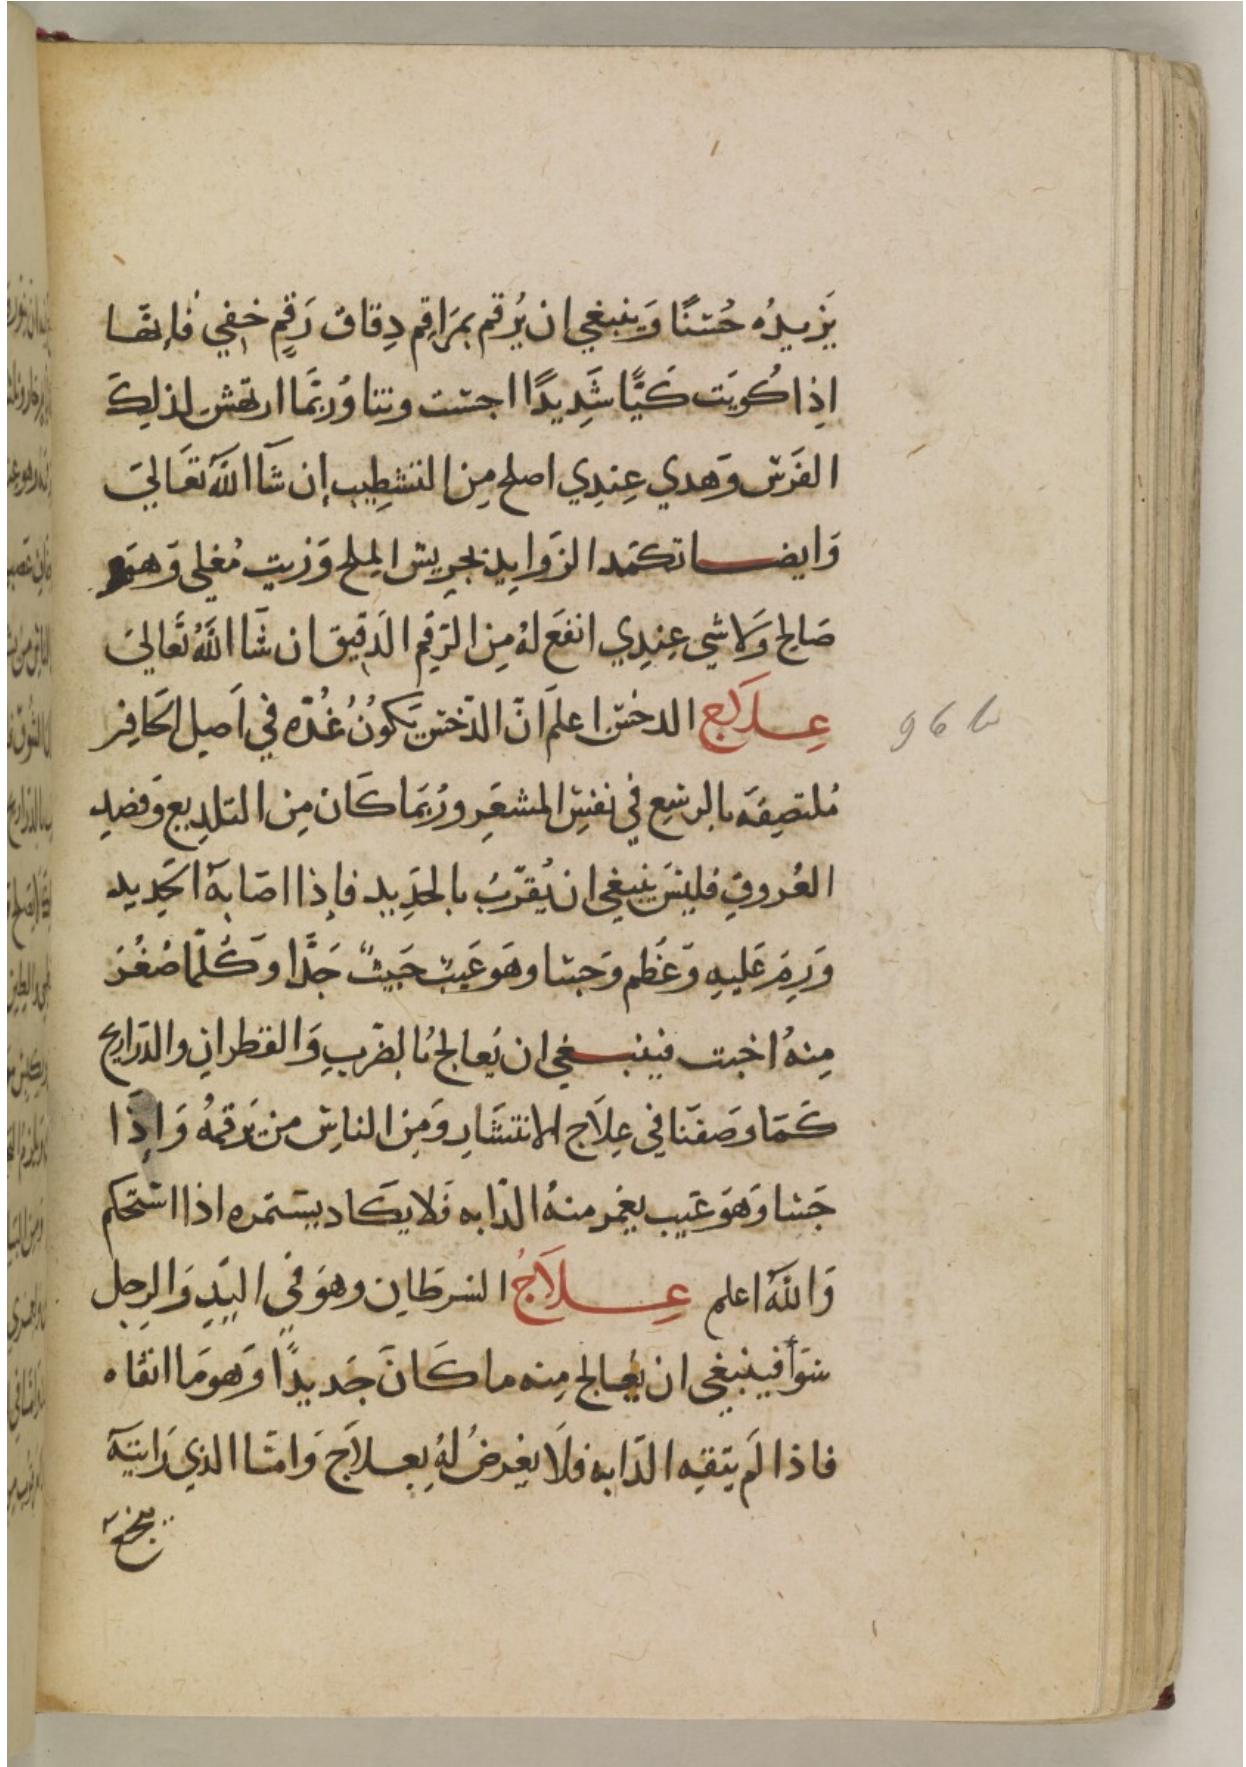 يَزيدُه حُسْنًا وَينبغي ان يُرقم بمَراقِم دِقاق رَقمٍ خفِي فَإنها
اِذا كُويَت كَيًّا شَدِيدًا اجتت ونتا وَربّمَا ارتهَش لذلِكَ
الفرَس وَهدي عِندِي اصلح مِن التشطِيب إن شآ اللهَ تعَاليَ
وَايضا تكمَد الزوايد بجريش الملح وَزيت مُغلي وَهوَ
صَالح وَلا شي عِندِي انفعَ لهُ مِن الرَقمِ الدَقيق ان شآ اللهُ تعَاليَ
عِلاج الدخس اعلَم انّ الدّخس يَكونُ غُدّه في اَصل الحَافِر
مُلتصِقَه بالرسغ في نفسِ المشعَرِ وَربمَا كَان مِن التلديع وفصدِ
العُروقِ فليسَ ينبغي ان يُقرّبُ بالحَدِيد فاِذا اصَابهُ الحَديد
وَرِمَ عَليهِ وَعَظم وَجسا وهَوعَيبٌ خَبيثٌ جَدًّا وكُلّمَا صُغُرَ
مِنهُ اخبت فينبغي ان يُعالج بالضّربِ وَالقطران والدرَاريح
كَمَا وصَفنَا في عِلَاج الانتشَار وَمِن الناس من يَرقمهُ وَاِذا
جَسا وَهوَ عَيب يغمر منهُ الدّابه فَلا يكَاد يستمره اذا استحكم
وَاللهُ اعلم عِلَاجُ السَرطَان وهوَ في اليَدِ وَالرجل
سَوَآ فينبغي ان يُعالج مِنه ما كَانَ جَديدًا وَهوَ مَا اتقاه
فاذا لَم يتقِه الدّابه فلَا يعْرضُ لهُ بعِلَاج وَامّا الذي رَايتهَ